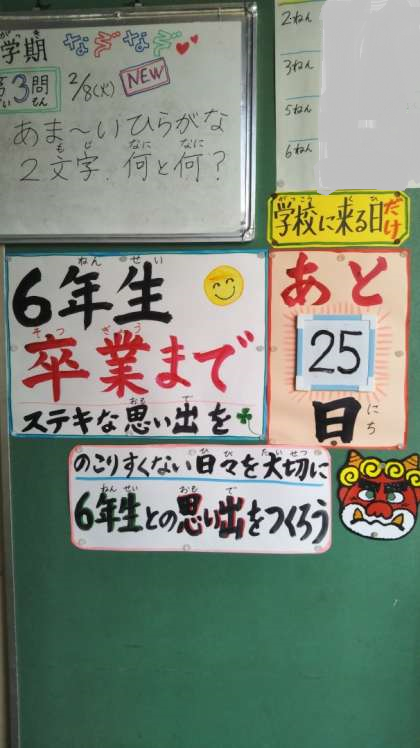 学期 なぞなぞ
第3問 2/8(火) NEW
あま〜いひらがな
2文字、何と何?
2ねん
3ねん
5ねん
6ねん
学校に来る日だけ
6年生
卒業まで
ステキな思い出を
あと
25
日
のこりすくない日々を大切に
6年生との思い出をつくろう